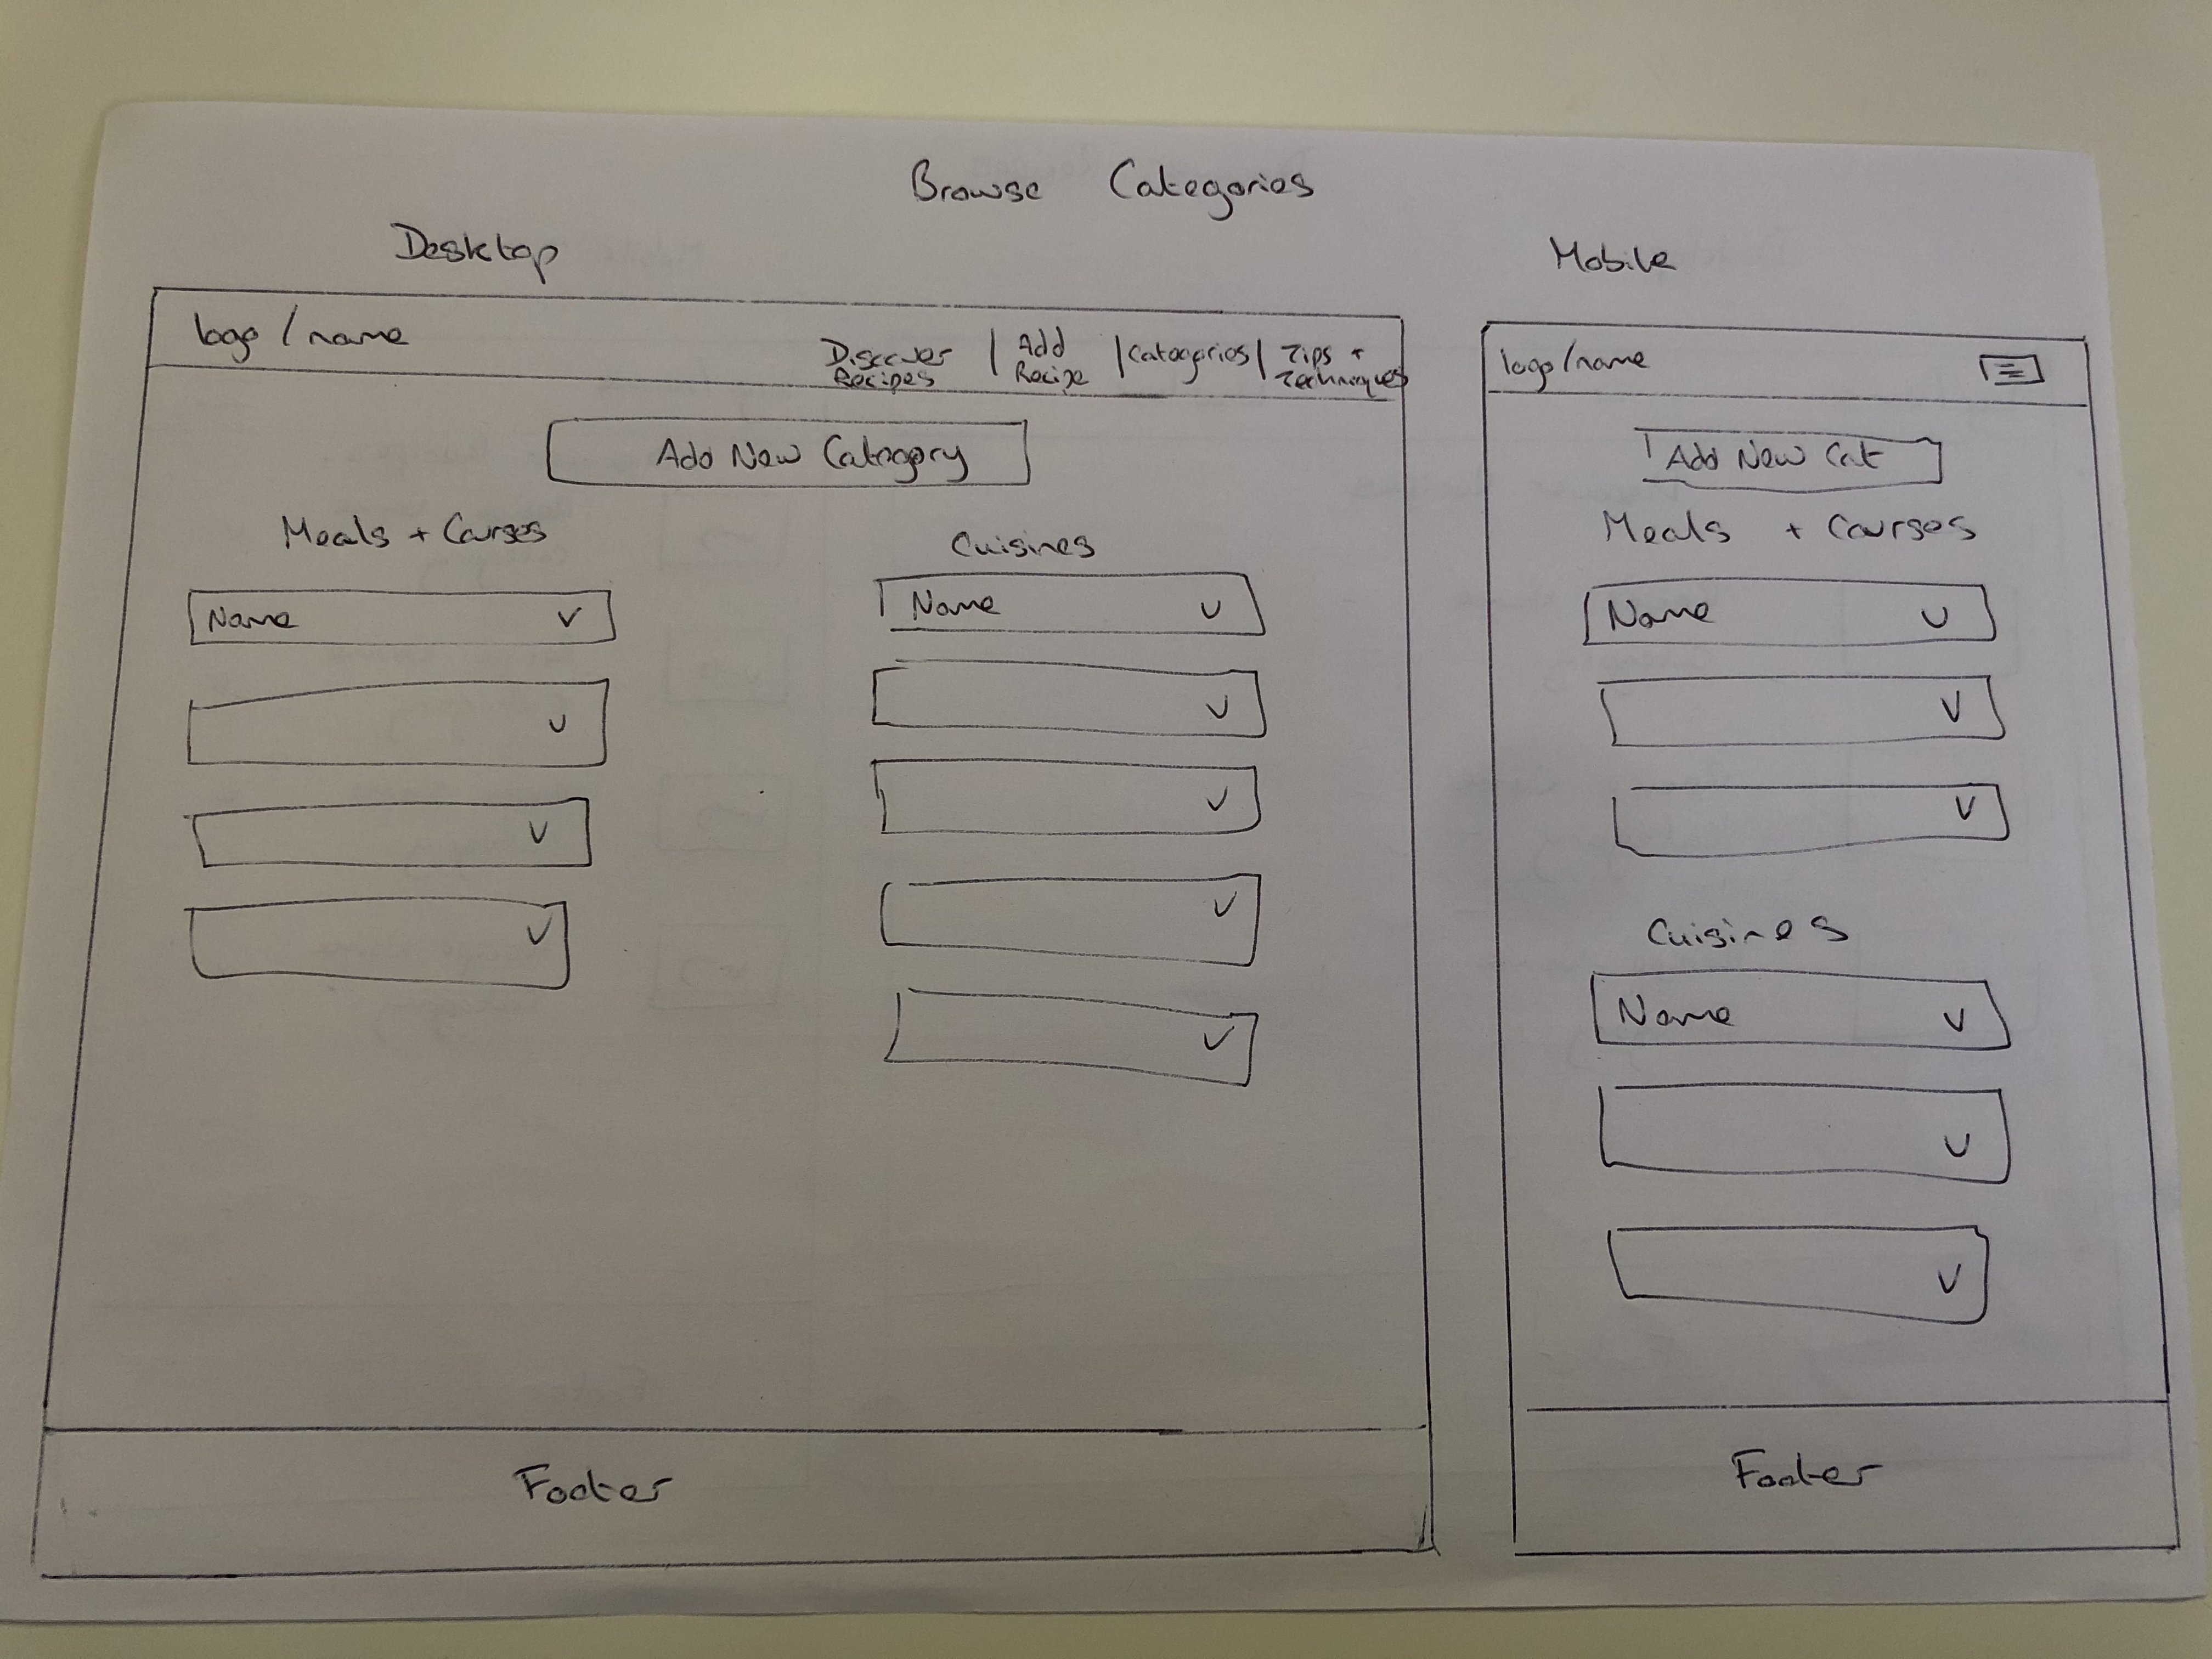 Browse Categories
Desktop
logo / name
Discover Recipes | Add Recipe | Categories | Tips + Techniques
Add New Category
Meals + Courses
Name
Cuisines
Name
Footer
Mobile
logo/name
Add New Cat
Meals + Courses
Name
Cuisines
Name
Footer